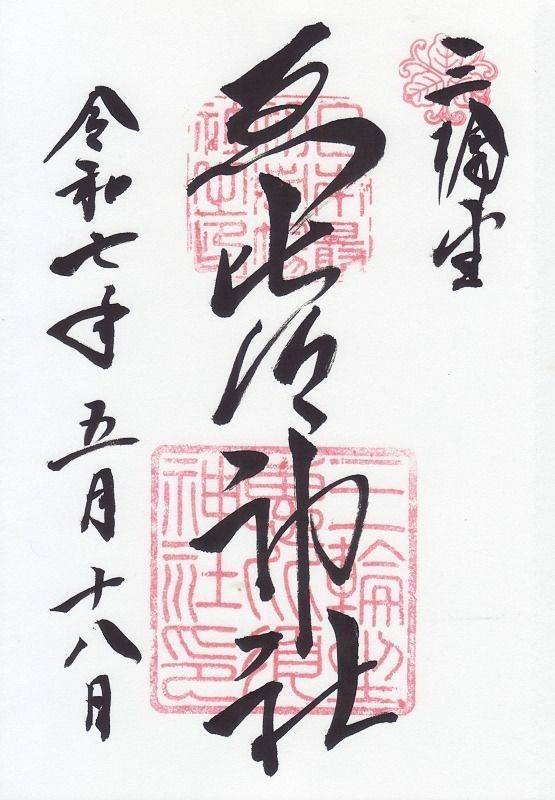 三輪坐
恵比須神社
令和七年五月十八日
三輪坐
恵比須
神社印